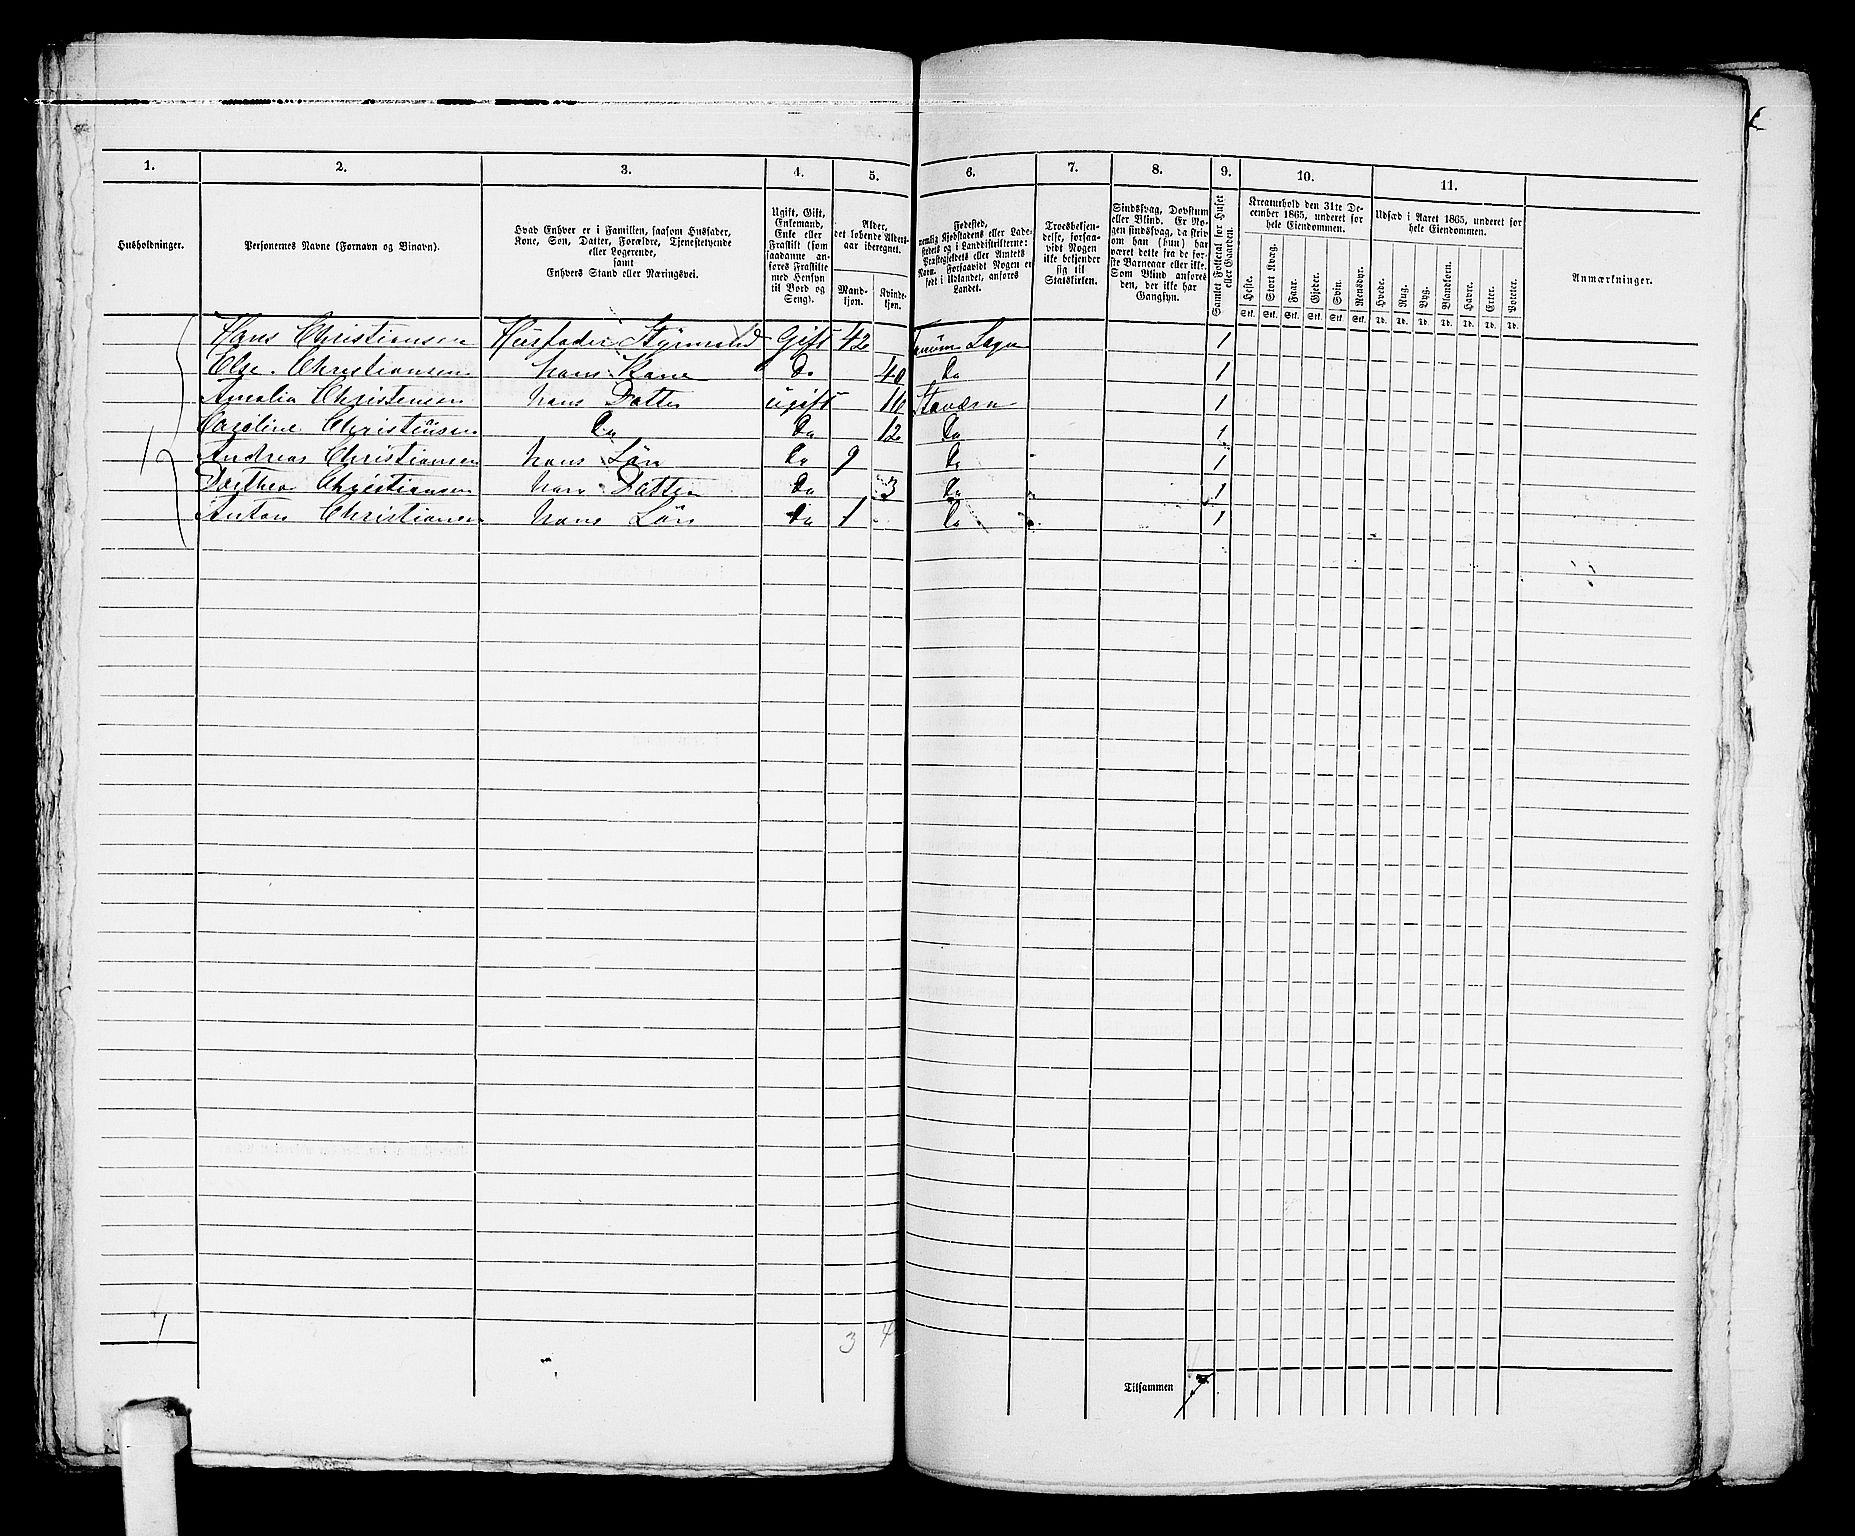 1. 2. 3. 4. 5. 6. 7. 8. 9. 10. 11.
Husholdninger.
Personernes Navne (Fornavn og Binavn).
Hvad Enhver er i Familien, saasom Husfader,
Kone, Søn, Datter, Forældre, Tjenestetyende
eller Logerende,
samt
Enhvers Stand eller Næringsvei.
Ugift, Gift,
Enkemand,
Enke eller
Fraskilt (som
saadanne an-
føres Fraskilte
med Hensyn
til Bord og
Seng).
Alder,
det løbende Alders-
aar iberegnet.
Mand-
kjøn.
Kvinde-
kjøn.
Fødested,
nemlig Kjøbstadens eller Lade-
stedets og i Landdistrikterne:
Præstegjeldets eller Amtets
Navn. Forsaavidt Nogen er
født i Udlandet, anføres
Landet.
Troesbekjen-
delse, forsaa-
vidt Nogen
ikke bekjender
sig til
Statskirken.
Sindssvag, Døvstum
eller Blind. Er No-
gen sindssvag, da skriv
om han (hun) har
været dette fra de før-
ste Barneaar eller ikke.
Som Blind anføres
den, der ikke har
Gangsyn.
Samlet Folketal for Huset
eller Gaarden.
Kreaturhold den 31te De-
cember 1865, underet for
hele Eiendommen.
Heste. Stort Kvæg. Faar. Gjeder. Svin. Rensdyr.
Stk. Stk. Stk. Stk. Stk. Stk.
Udsæd i Aaret 1865, underet for
hele Eiendommen.
Hvede. Rug. Byg. Blandkorn. Havre. Erter. Poteter.
Td. Td. Td. Td. Td. Td. Td.
Anmærkninger.
Hans Christiansen Husfader Styrmand Gift 42 Tanum Sogn 1
Else Christiansen hans Kone Do 40 Do 1
Amalia Christensen hans Datter ugift 16 1
Caroline Christiansen Do Do 12 Do 1
Andreas Christiansen hans Søn Do 9 Do 1
Dorthea Christiansen hans Datter Do 3 Do 1
Anton Christiansen hans Søn Do 1 Do 1
1 3 4
Tilsammen 7